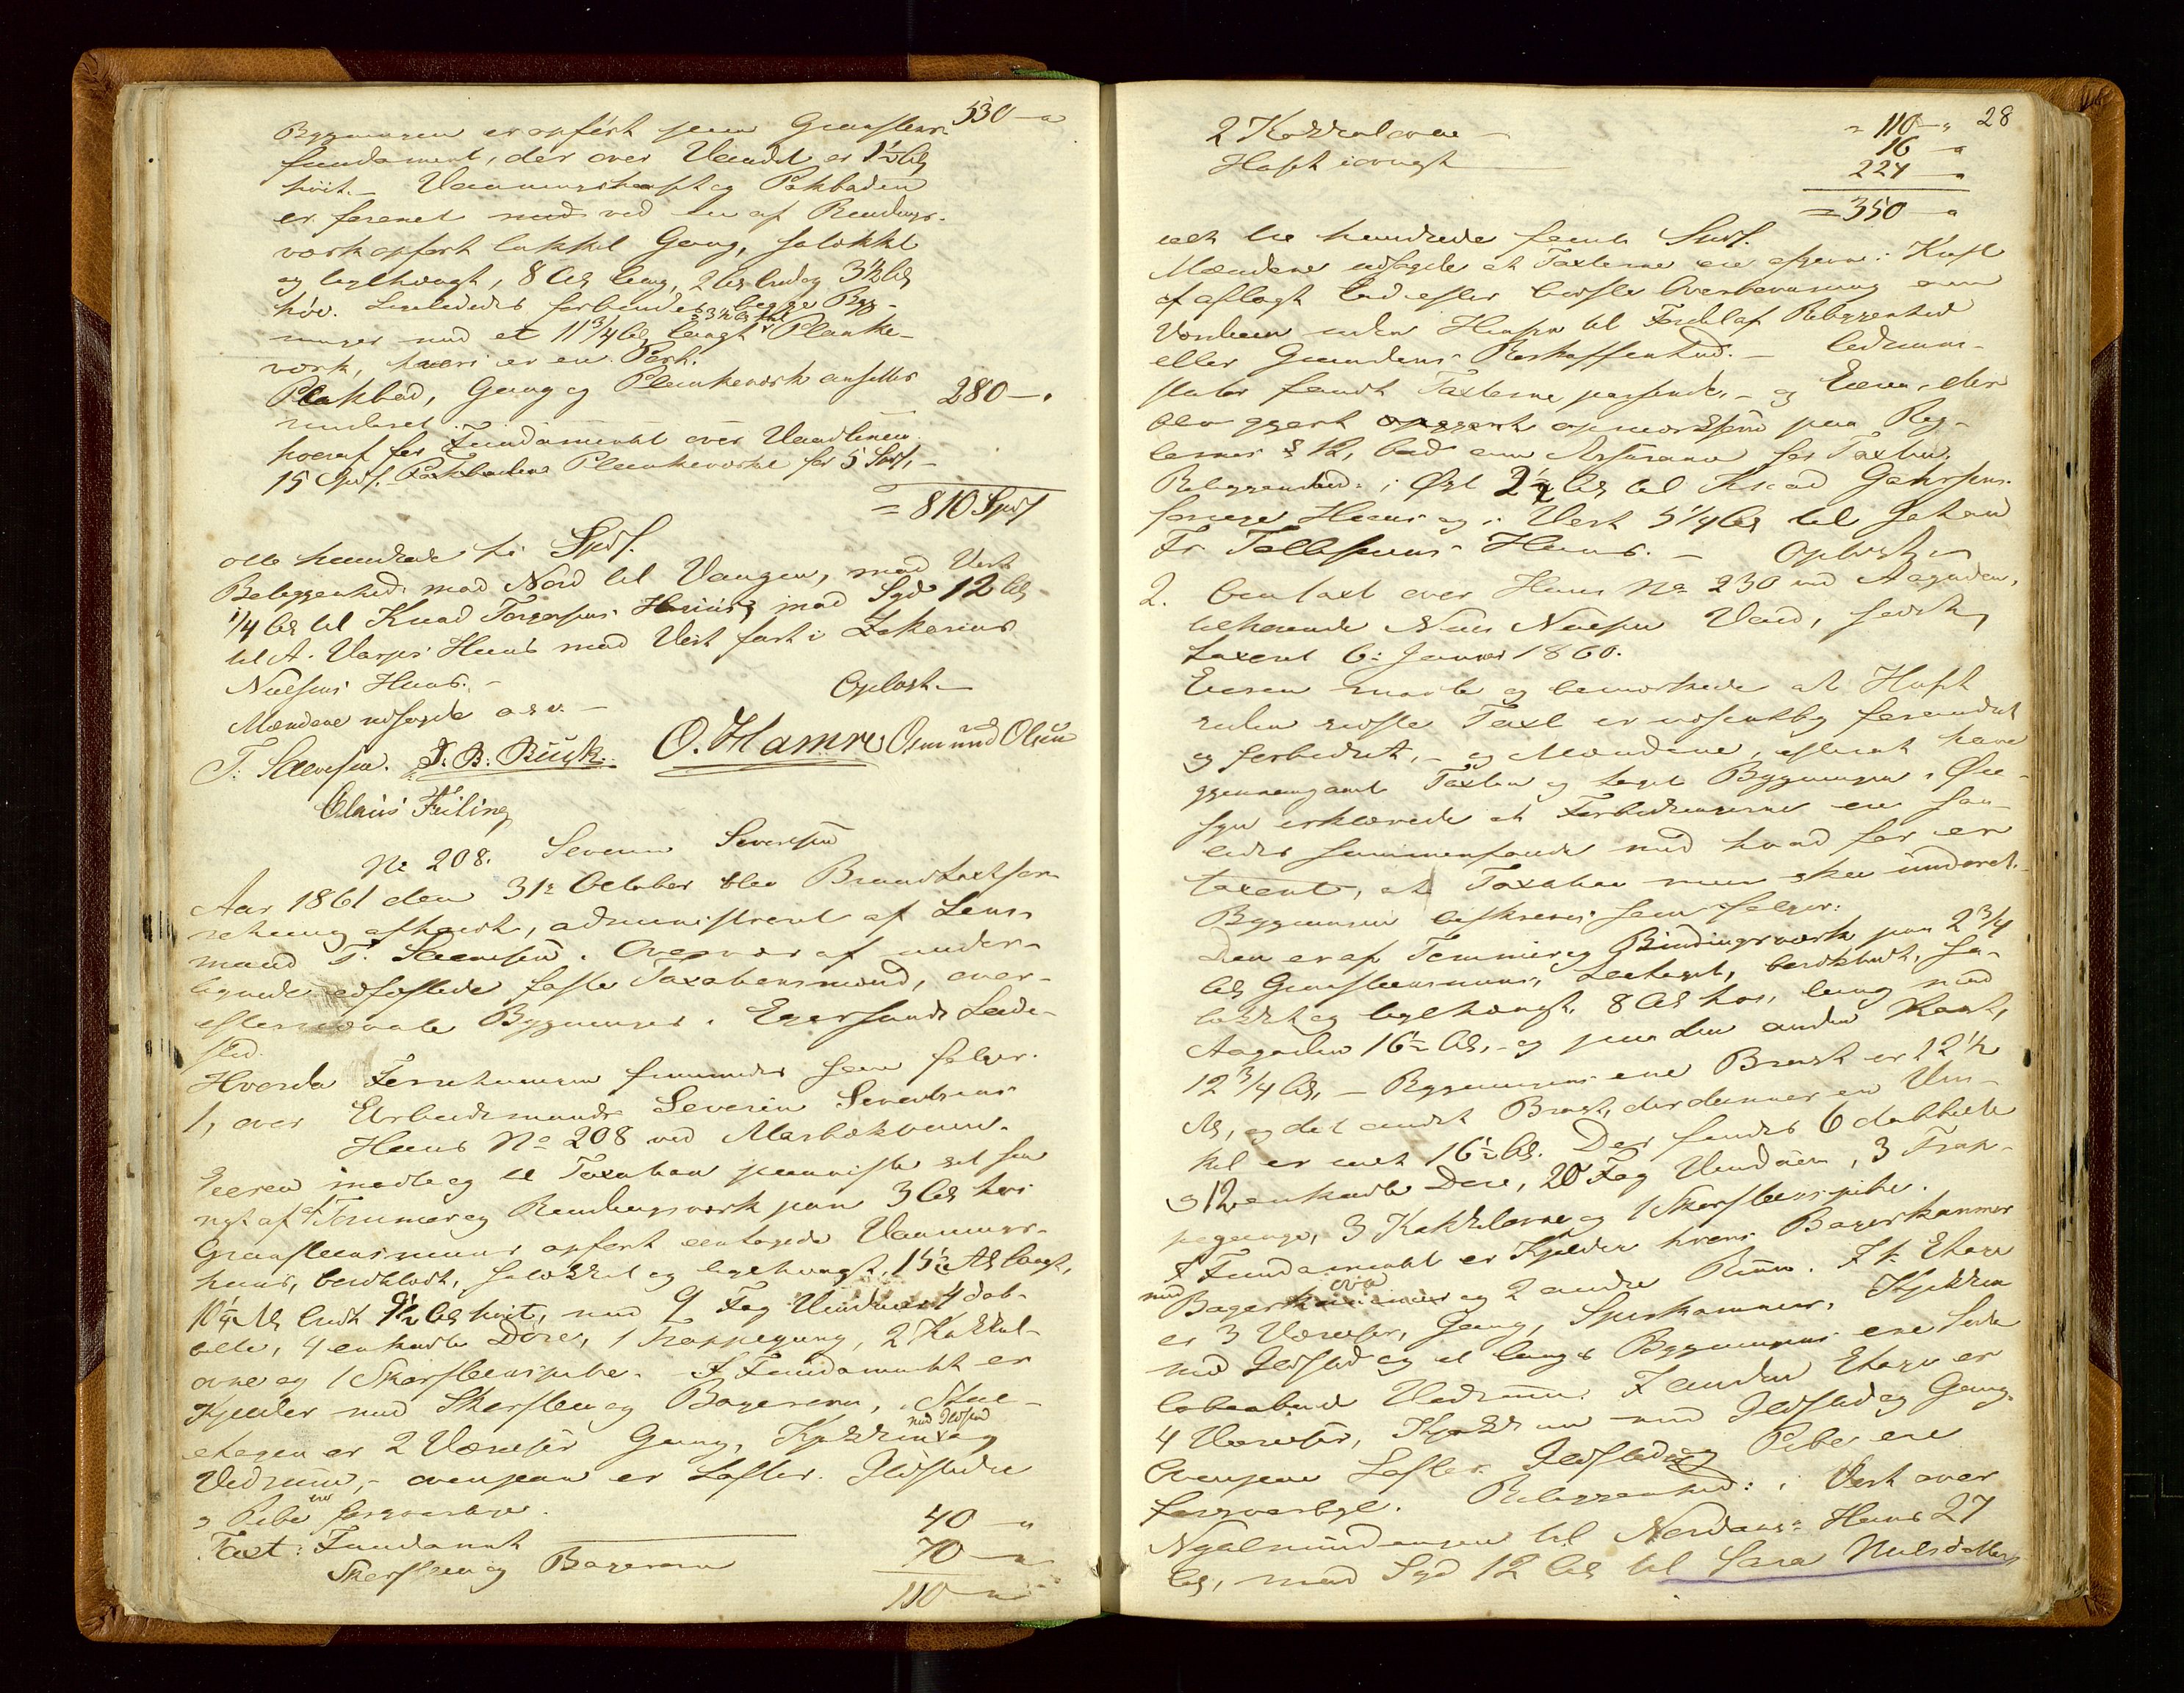 530 —"
Bygningen er opført paa Graasteens-
fundament, der over Vandet er 1½ Al
høit. — Vaaningshuset og Pakboden
er forenet med ved en af Bindings-
værk opført lukket Gang, solækket
og teglhængt, 8 Al lang, 2 Al bred og 3½ Al
høi. Ligeledes forbindes begge Byg-
ninger med et 11¾ Al langt 3½ Al høit Planke-
værk, hvori er en Port.
Pakbod, Gang og Plankeværk ansettes
280 —"
hvoraf for Fundamentet over Vandlinien
15 Spd. Pakbodens Plankeværket for 5 Spd, —
= 810 Spd
otte hundrede ti Spd.
Beliggenhed: mod Nord til Vaagen, mod Vest
¼ Al til Knud Torgersens Huus, mod Syd 12 Al
til A. Varps Huus mod Vest fast i Zakarias
Nielsens Huus. —
Mændene udsagde osv. —
Oplæst —
T. Svensen. J. B. Büsk. O. Hamre Osmund Olsen
Claus Feiling
No 208. Severin Severinsen
Aar 1861 den 31te October blev Brandtaxtfor-
retning afholdt, administreret af Lens-
mand T. Svensen. Overvær af under-
tegnede edfæstede faste Taxationsmænd, over
efternævnte Bygninger i Egersunds Lade-
sted.
Hvorda Forretningen fremmedes som følger.
1, over Arbeidsmand Severin Severinsens
Huus No 208 ved
Eieren mødte og til Taxation paaviste set sin
nyt af af Tømmer og Bindingsværk paa 3 Al høi
Graasteensmuur opført eentages Vaanings-
huus, bordklædt, solækket og teglhængt, 15½ Al langt,
10¼ Al bredt 9½ Al høit, med 9 Fag Vinduer 4 dob-
belte, 4 enkelte Døre, 1 Trappegang, 2 Kakkel-
ovne og 1 Skorsteenspibe. I Fundamentet er
Kjelder med Skorsteen og Bagerovn, i Stue-
etagen er 2 Værelser Gang, Kjøkken med Ildsted og
Vedrum, — ovenpaa er Lofter. Ildstedet
og Pibe ere forsvarlige.
Taxt: Fundament
40 —"
Skorsteen og Bagerovn
70 —"
110 —"
28
= 110 —"
2 Kakkelovne —
16 —"
Huset iøvrigt —
224 —"
= 350 —"
alt tre hundrede femti Spd.
Mændene udsagde at Taxterne ere afgivne i Kraft
af aflagt Eed efter bedste Overbeviisning om
Værdien uden Hensyn til Fordel af Beliggenhed
eller Grundens Beskaffenhed. —
fandt Taxterne passende, — og Eieren, der
blev gjort opmærksom paa Reg-
lernes § 12, bad om Assurance for Taxten.
Beliggenhed: i Øst 2½ Al til Knud
Huus og i Vest 5¼ Al til Johan
Fr. Tollefsens Huus. — Oplæst —
2. Omtaxt over Huus No 230 ved Aagaden,
tilhørende Niels Nielsen Vand, sidst
taxeret 6. Januar 1860.
Eieren mødte og bemærkede at Huset
siden sidste Taxt er væsentlig forandret
og forbedret, — og Mændene, efterat have
gjennemgaaet Taxten og taget Bygningen i Øie-
syn erklærede at Forbedringerne ere saa-
ledes sammensatte med hvad før er
taxeret, at Taxation maa skee underet.
Bygningen beskrives som følger:
Den er af Tømmer og Bindingsværk paa 2¾
Al Graasteensmuur, toetages, bordklædt, so-
lækket og teglhængt, 8 Al høi, lang mod
Aagaden 16½ Al, — og paa den anden Kant,
12¾ Al, — Bygningens ene Bredt er 12½
Al, og det andet Bredt, der danner en Vin-
kel er endt 16½ Al. Der findes 6 dobbelte
og 12 enkelte Døre, 20 Fag Vinduer, 3 Trap-
pegange, 3 Kakkelovne og 1 Skorsteenspibe.
I Fundamentet er Kjelder hvori Bagerkammer
med Bagerovn og 2 andre Rum. I 1ste Etage
er 3 Værelser, Gang, Spiskammer, Kjøkken
med Ildsted og et langs Bygningens ene Side
løbende Vedrum. I anden Etage er
4 Værelser, Kjøkken med Ildsted og Gang.
Ovenpaa Lofter. Ildsteder og Pibe ere
forsvarlige. Beliggenhed: i Vest over
til Nordens Huus 27
Al, mod Syd 12 Al til Sara Nielsdatters